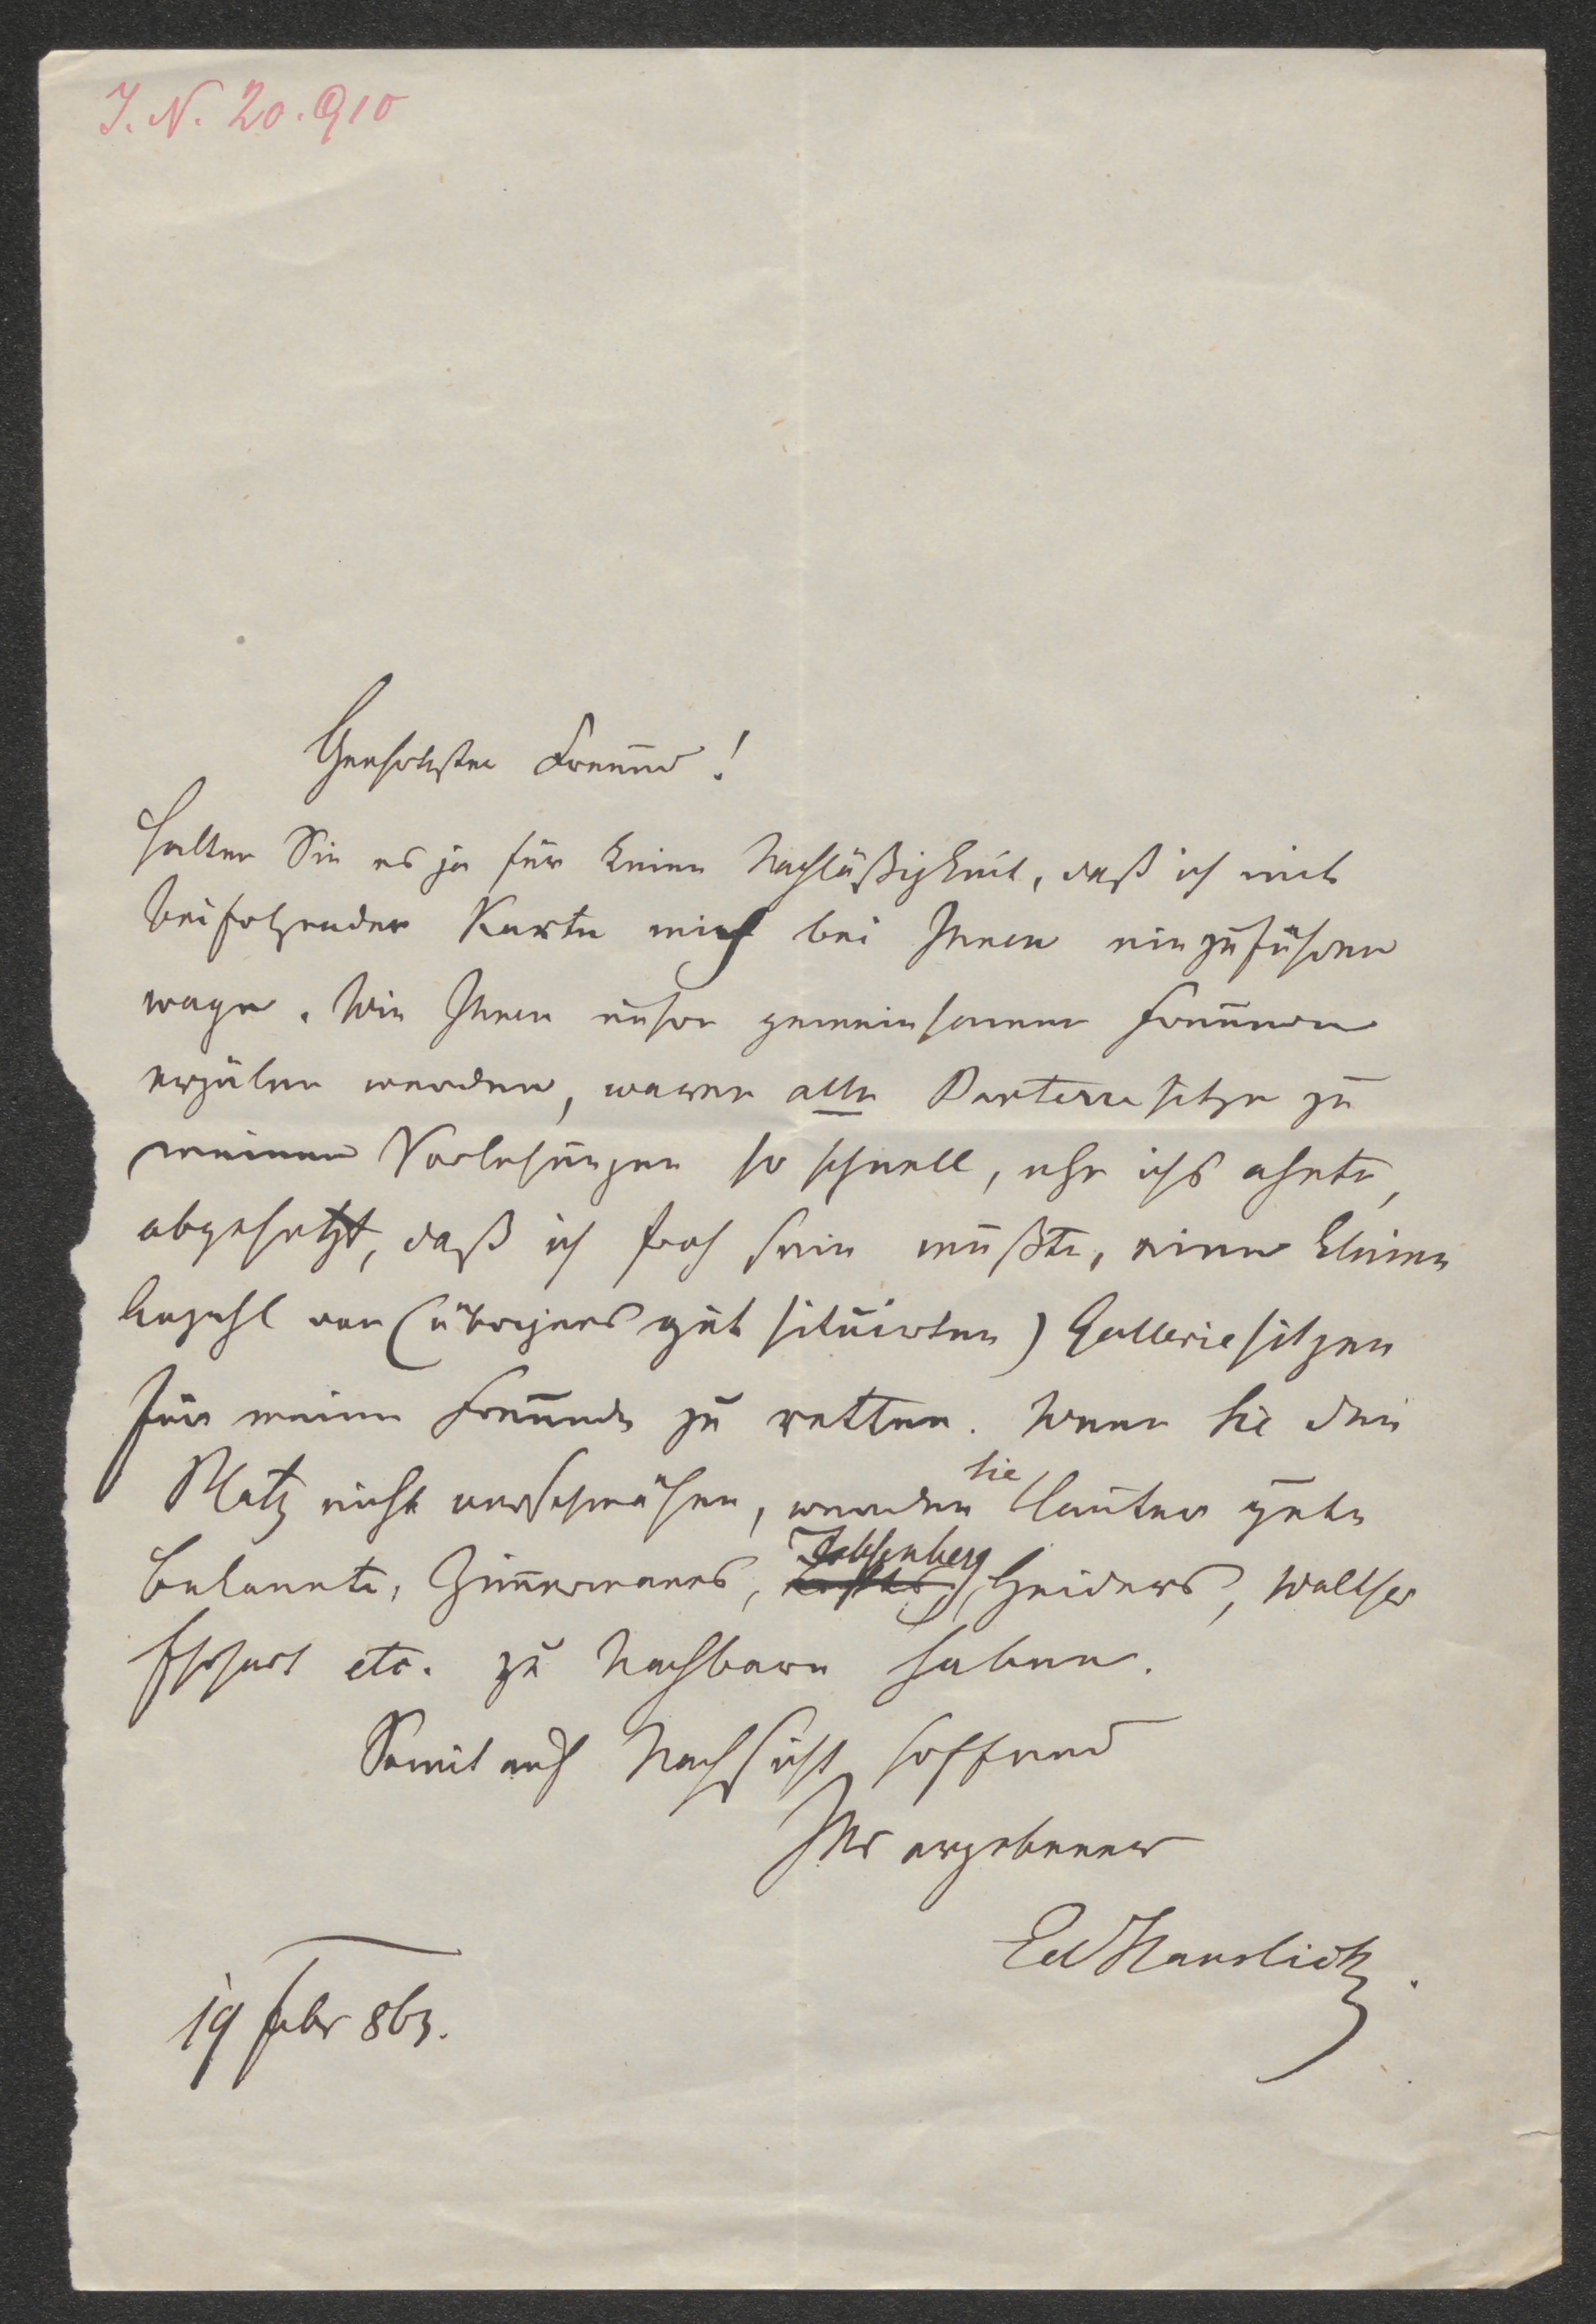 I. N. 20.910
Geehrtester Freund!
Halten Sie es ja für keine Nachläßigkeit, daß ich mit
beifolgender Karte mich bei Ihnen einzuführen
wage. Wie Ihnen unsere gemeinsamen Freunde
erzälen werden, waren alle Parterresitze zu
meinen Vorlesungen so schnell, ehe ichs ahnte,
abgesetzt, daß ich froh sein mußte, eine kleine
Anzahl von (übrigens gut situirten) Galleriesitzen
für meine Freunde zu retten. Wenn Sie den
Platz nicht verschmähen, werden Sie lauter gute
Bekannte, Zimmermanns, Heiders, Walther
etc. zu Nachbarn haben.
Somit auf Nachsicht hoffend
Ihr ergebener
Ed Hanslick.
19 Febr 863.